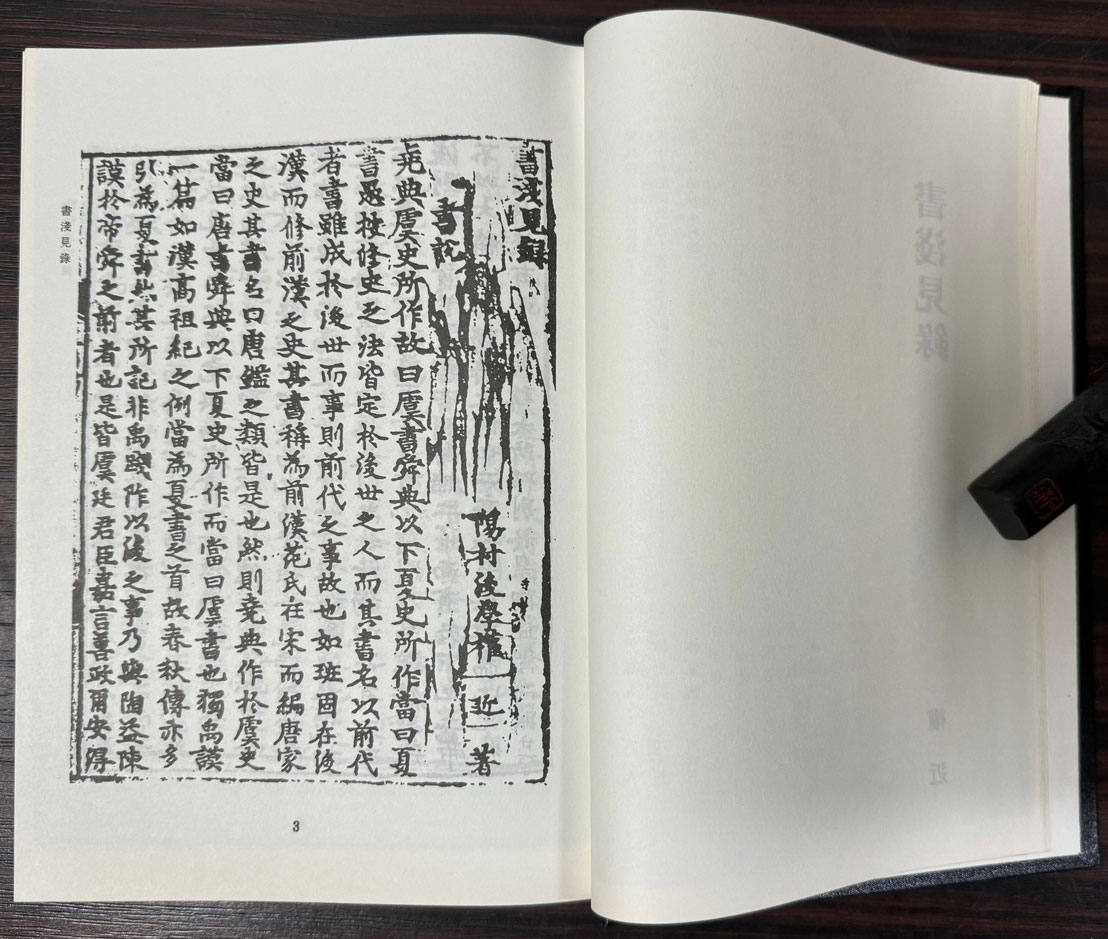 書淺見錄
陽村後學權近著
書說
堯典虞史所作故曰虞書舜典以下夏史所作當曰夏
書愚按修史之法皆定於後世之人而其書名以前代
者書雖成於後世而事則前代之事故也如班固在後
漢而修前漢之史其書稱為前漢范氏在宋而編唐家
之史其書名曰唐鑑之類皆是也然則堯典作於虞史
當曰唐書舜典以下夏史所作而當曰虞書也獨禹謨
一篇如漢高祖紀之例當為夏書之首故春秋傳亦多
引為夏書然其所記非禹踐阼以後之事乃與陶益陳
謨於帝舜之前者也是皆虞廷君臣嘉言善政爾安得
書淺見錄
3